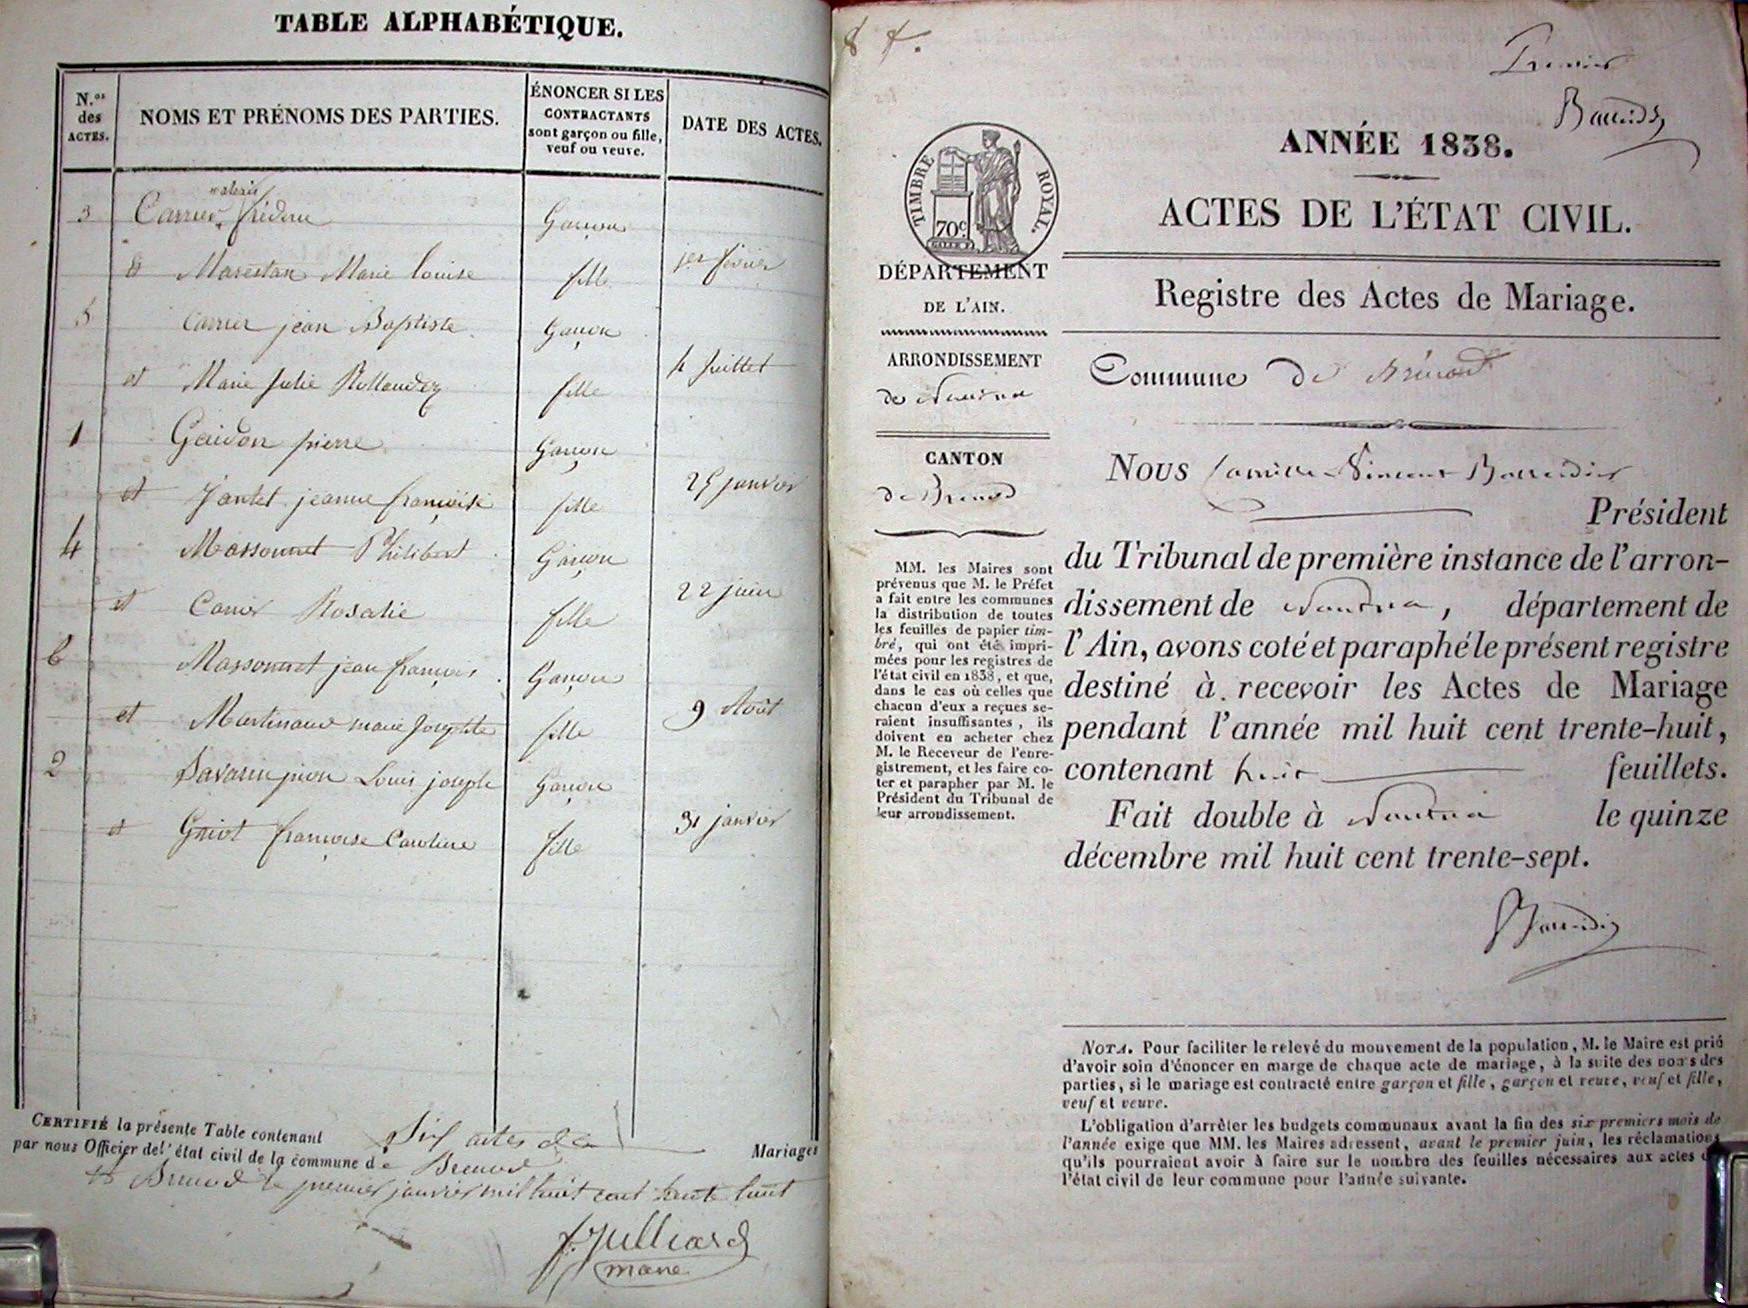 TABLE ALPHABÉTIQUE.
N.os des ACTES.
NOMS ET PRÉNOMS DES PARTIES.
ÉNONCER SI LES
CONTRACTANTS
sont garçon ou fille,
veuf ou veuve.
DATE DES ACTES.
alexis
3 Carrier frédéric Garçon
& Marestan Marie Louise fille 1er février
5 Carrier jean Baptiste Garçon
et Marie Julie Rollandez fille 4 Juillet
1 Guidon pierre Garçon
et Jantet jeanne françoise fille 25 janvier
4 Massonnet Philibert Garçon
et Carrier Rosalie fille 22 juin
6 Massonnet jean françois Garçon
et Martinand marie Josephte fille 9 Août
2 Savarin pion Louis joseph Garçon
et Guiot françoise Caroline fille 31 janvier
CERTIFIÉ la présente Table contenant Six actes de Mariages
par nous Officier de l'état civil de la commune de Brenod
à Brenod le premier janvier mil huit cent trente huit
f. Julliard
maire
8 f.
Premier
ANNÉE 1838.
ACTES DE L'ÉTAT CIVIL.
Registre des Actes de Mariage.
TIMBRE ROYAL.
70c.
DÉPARTEMENT
DE L'AIN.
ARRONDISSEMENT
de Nantua
CANTON
de Brenod
MM. les Maires sont
prévenus que M. le Préfet
a fait entre les communes
la distribution de toutes
les feuilles de papier tim-
bré, qui ont été impri-
mées pour les registres de
l'état civil en 1838, et que,
dans le cas où celles que
chacun d'eux a reçues se-
raient insuffisantes, ils
doivent en acheter chez
M. le Receveur de l'enre-
gistrement, et les faire co-
ter et parapher par M. le
Président du Tribunal de
leur arrondissement.
Commune de Brénod
NOUS Camille Vincent
Président
du Tribunal de première instance de l'arron-
dissement de Nantua, département de
l'Ain, avons coté et paraphé le présent registre
destiné à recevoir les Actes de Mariage
pendant l'année mil huit cent trente-huit,
contenant huit feuillets.
Fait double à Nantua le quinze
décembre mil huit cent trente-sept.
NOTA. Pour faciliter le relevé du mouvement de la population, M. le Maire est prié
d'avoir soin d'énoncer en marge de chaque acte de mariage, à la suite des noms des
parties, si le mariage est contracté entre garçon et fille, garçon et veuve, veuf et fille,
veuf et veuve.
L'obligation d'arrêter les budgets communaux avant la fin des six premiers mois de
l'année exige que MM. les Maires adressent, avant le premier juin, les réclamations
qu'ils pourraient avoir à faire sur le nombre des feuilles nécessaires aux actes
l'état civil de leur commune pour l'année suivante.